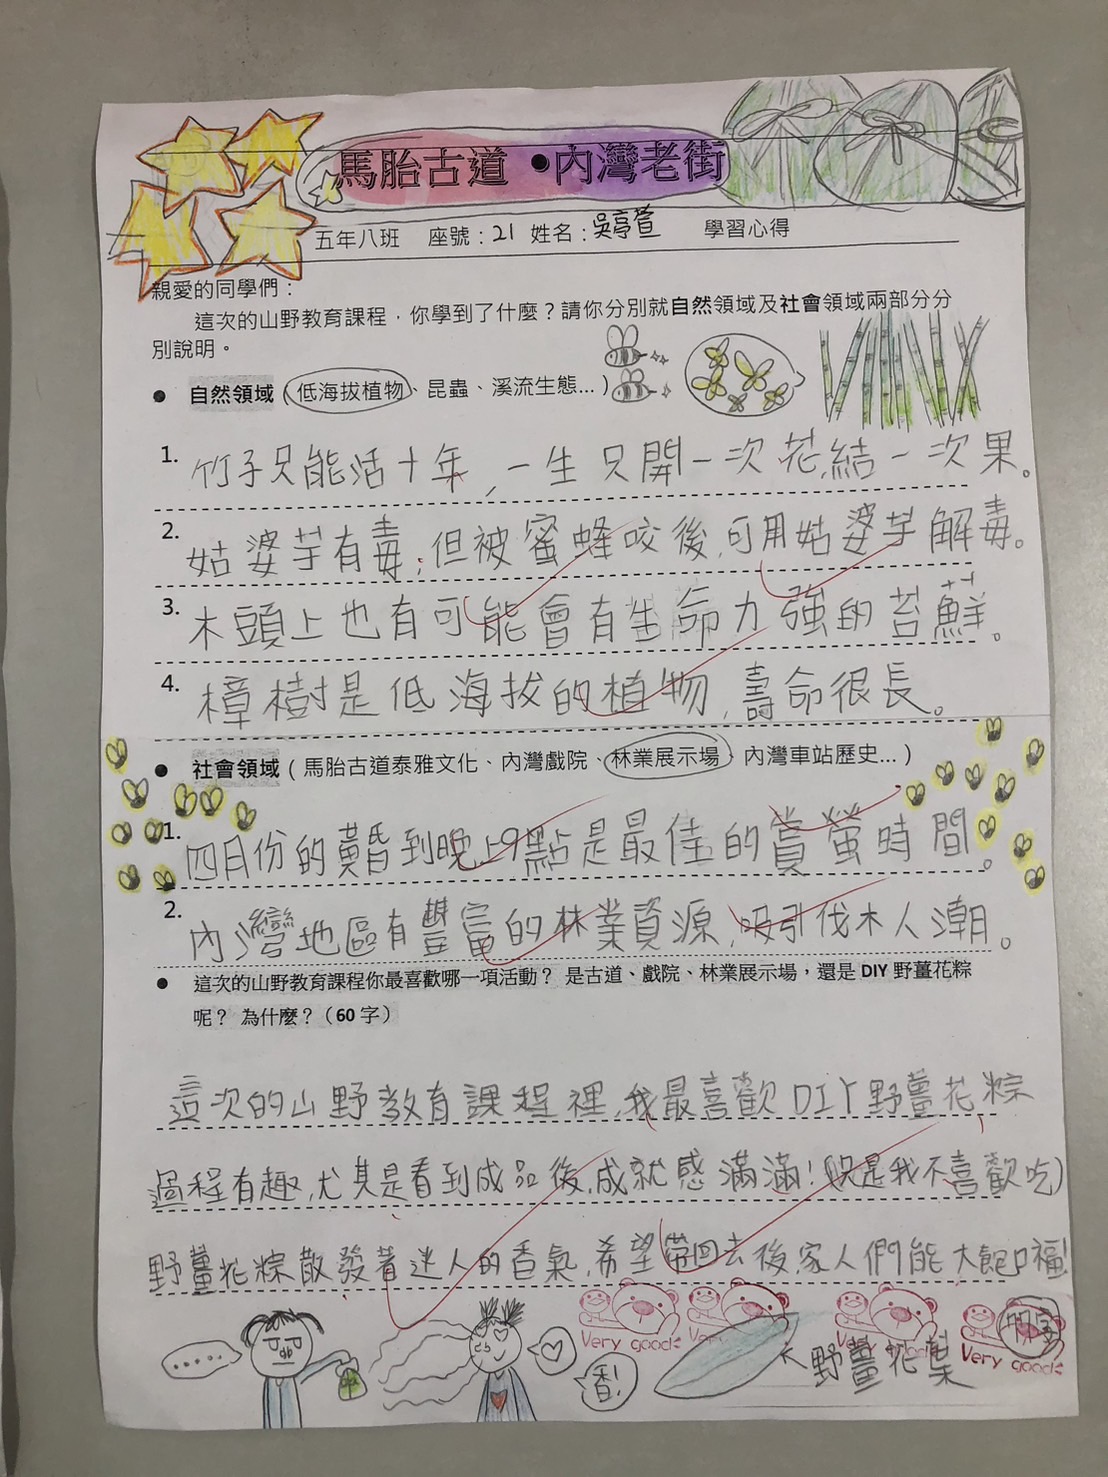 馬胎古道 •內灣老街
五年八班 座號：21 姓名：吳亭萱 學習心得
親愛的同學們：
這次的山野教育課程，你學到了什麼？請你分別就自然領域及社會領域兩部分分
別說明。
● 自然領域（低海拔植物、昆蟲、溪流生態...）
1. 竹子只能活十年，一生只開一次花，結一次果。
2. 姑婆芋有毒；但被蜜蜂咬後，可用姑婆芋解毒。
3. 木頭上也有可能會有生命力強的苔蘚。
4. 樟樹是低海拔的植物，壽命很長。
● 社會領域（馬胎古道泰雅文化、內灣戲院、林業展示場、內灣車站歷史...）
1. 四月份的黃昏到晚上9點是最佳的賞螢時間。
2. 內灣地區有豐富的林業資源，吸引伐木人潮。
● 這次的山野教育課程你最喜歡哪一項活動？ 是古道、戲院、林業展示場，還是 DIY 野薑花粽
呢？ 為什麼？（60 字）
這次的山野教育課程裡，我最喜歡DIY野薑花粽
過程有趣，尤其是看到成品後，成就感滿滿！(但是我不喜歡吃)
野薑花粽散發著迷人的香氣，希望帶回去後，家人們能大飽口福！
.....
香！
野薑花葉
Very good
Very good
Very good
Very good